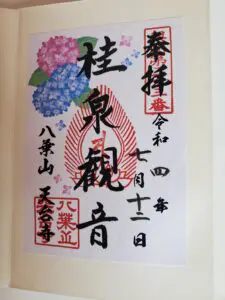 奉拝
令和四年
七月十二日
桂泉観音
八葉山 天台寺